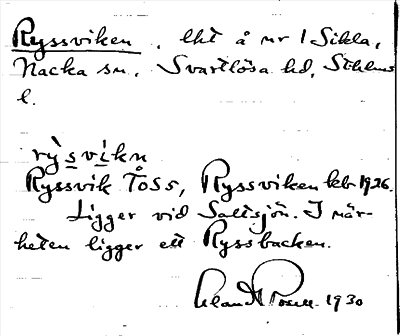 Ryssviken, lht å nr 1 Sikla,
Nacka sn, Svartlösa hd, Sthlms
l.
rỳsvikn
Ryssvik TÖSs, Ryssviken kbr 1926.
Ligger vid Saltsjön. I när-
heten ligger ett Ryssbacken.
1930